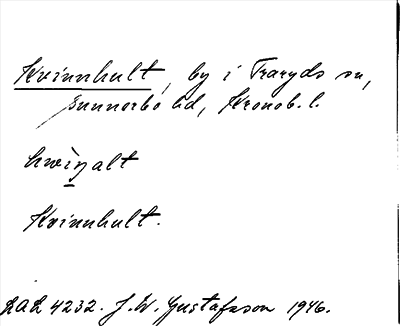 Kvinnhult, by i Traryds sn,
Sunnerbo hd, Kronob. l.
kwìŋalt
Kvinnhult.
DAL 4232. J. W. Gustafsson 1946.